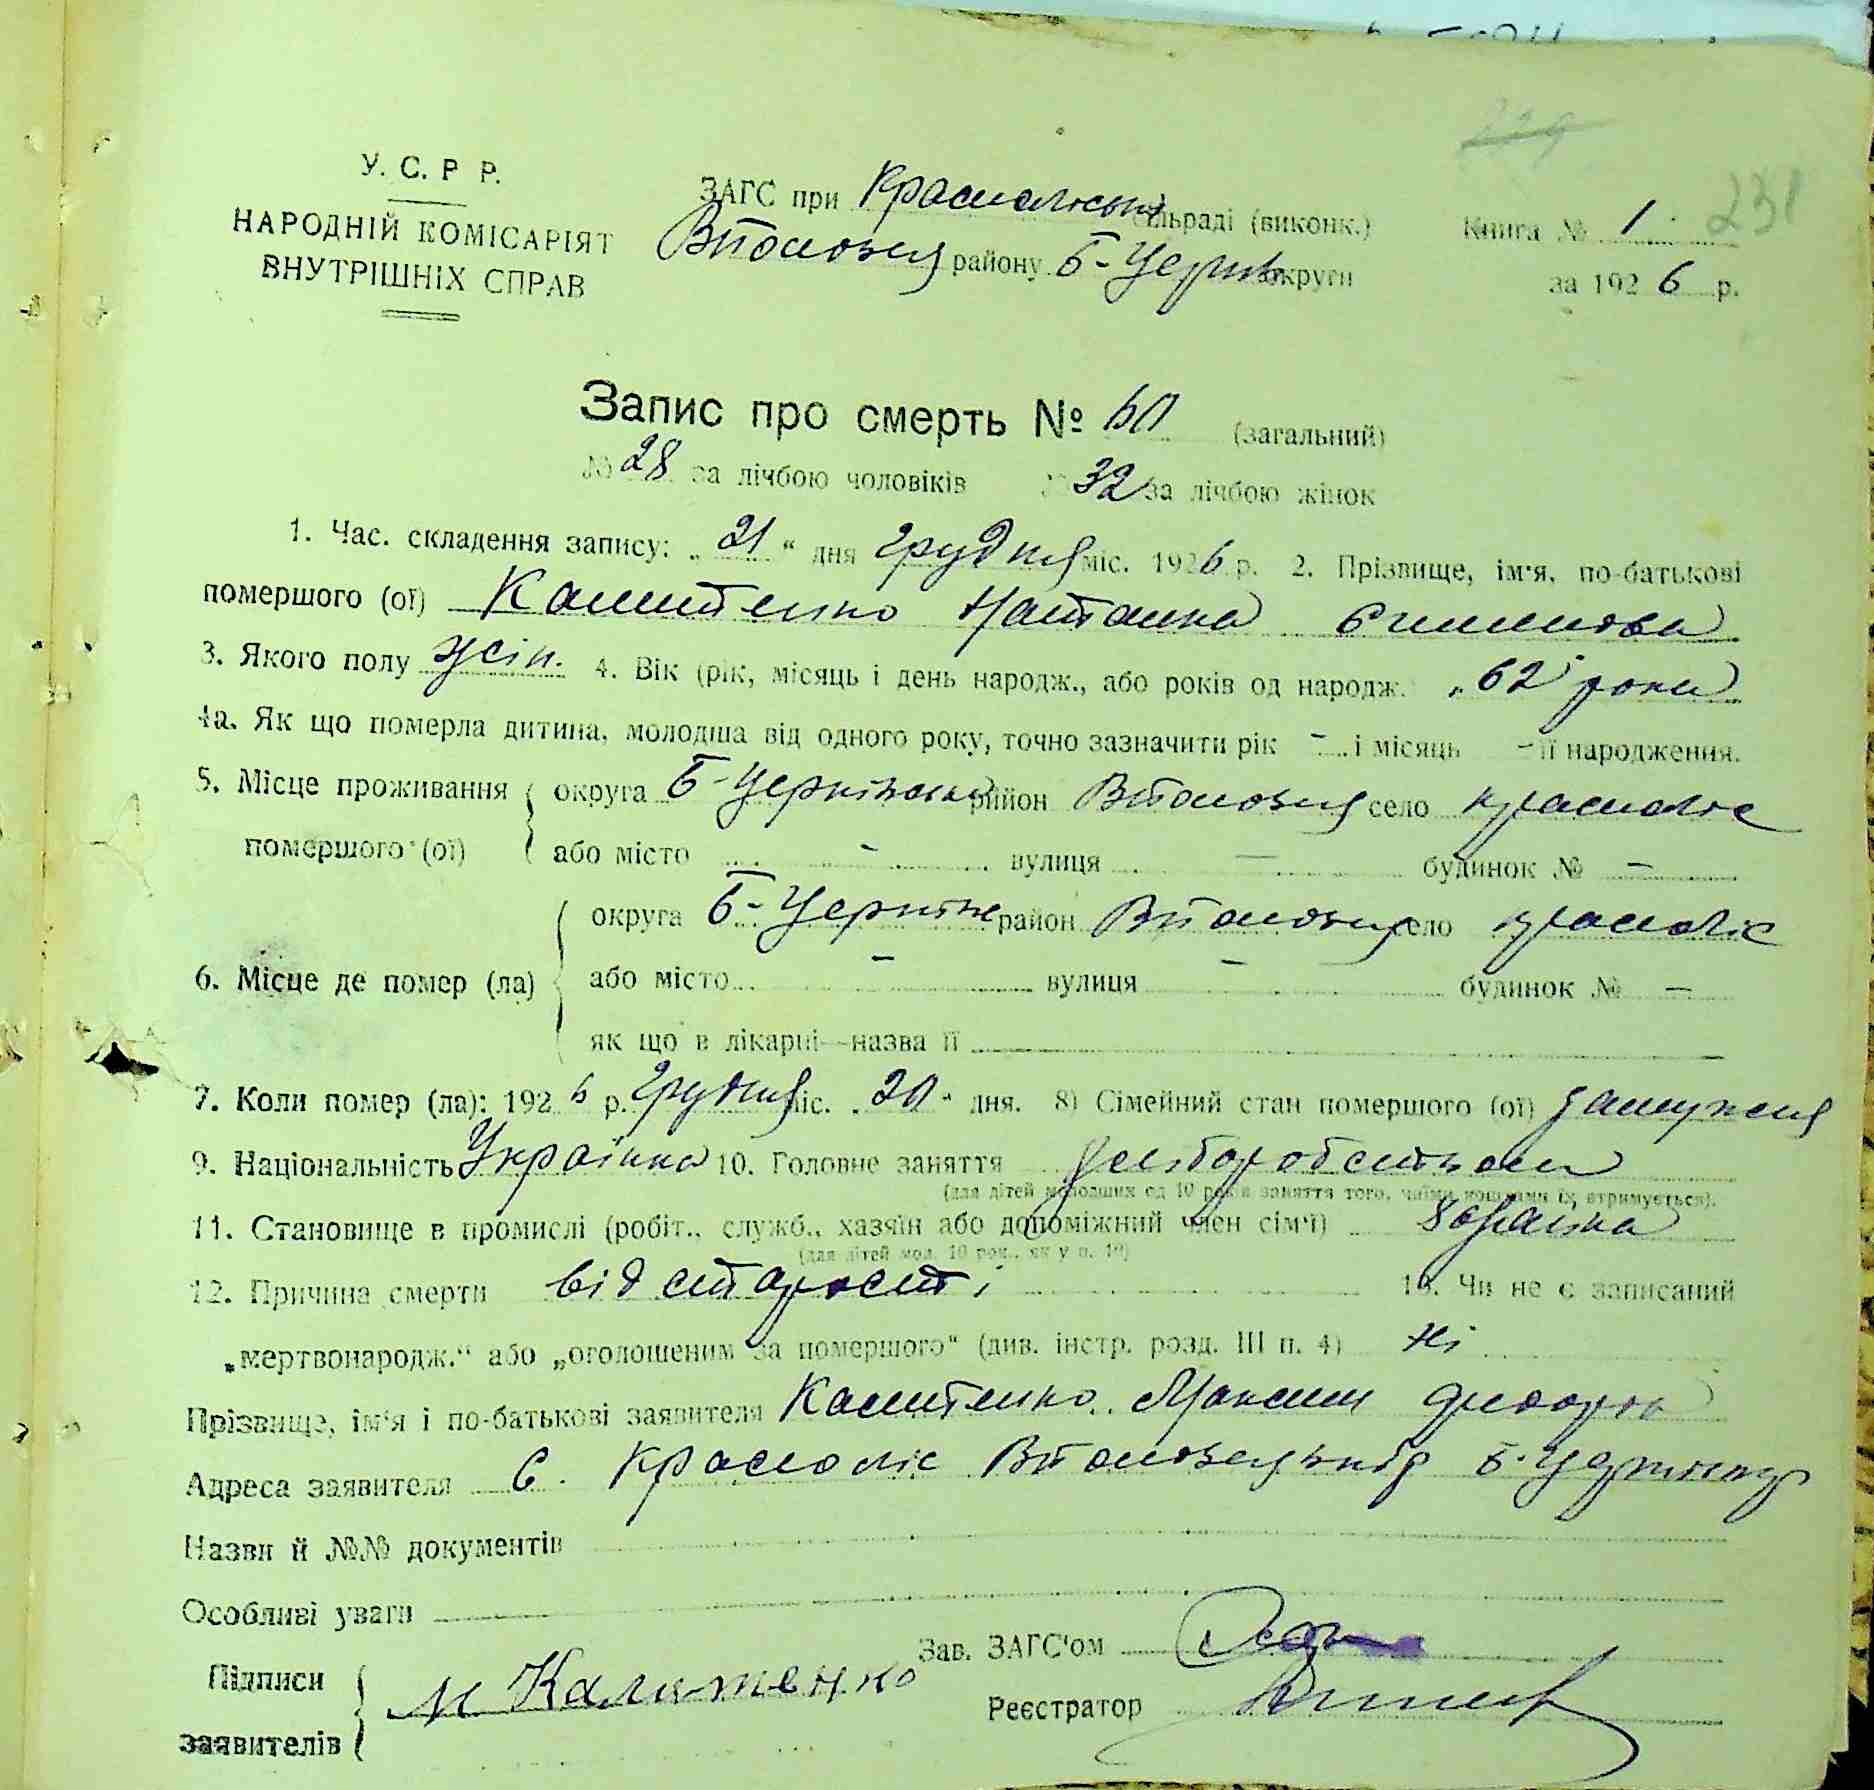 229
У. С. Р Р.
НАРОДНІЙ КОМІСАРІЯТ
ВНУТРІШНІХ СПРАВ
ЗАГС при Красноліськ сільраді (виконк.)
району Б-Церків округи
Книга № 1. 231
за 1926 р.
Запис про смерть № 60 (загальний)
№ 28 за лічбою чоловіків № 32 за лічбою жінок
1. Час. складення запису: „21“ дня грудня міс. 1926 р. 2. Прізвище, ім'я, по-батькові
помершого (ої) Калитенко
3. Якого полу жін. 4. Вік (рік, місяць і день народж., або років од народж. „62 роки
4а. Як що померла дитина, молодша від одного року, точно зазначити рік - і місяць - її народження.
5. Місце проживання округа Б-Церківська район село Красноліс
помершого (ої) або місто - вулиця - будинок № -
округа Б-Церків район село Красноліс
6. Місце де помер (ла) або місто - вулиця - будинок № -
як що в лікарні—назва її
7. Коли помер (ла): 1926 р. грудня міс. „20“ дня. 8) Сімейний стан помершого (ої) замужня
9. Національність Українка 10. Головне заняття
(для дітей молодших од 10 років заняття того, чиїми коштами їх утримується).
11. Становище в промислі (робіт., служб., хазяїн або допоміжний член сім'ї)
(для дітей мол. 10 рок., як у п. 10)
12. Причина смерти від старости 13. Чи не є записаний
„мертвонародж.“ або „оголошеним за помершого“ (див. інстр. розд. III п. 4) Ні
Прізвище, ім'я і по-батькові заявителя Калитенко Максим
Адреса заявителя С. Красноліс
Назви й №№ документів
Особливі уваги
Зав. ЗАГС'ом
Підписи
заявителів М Калитенко
Реєстратор